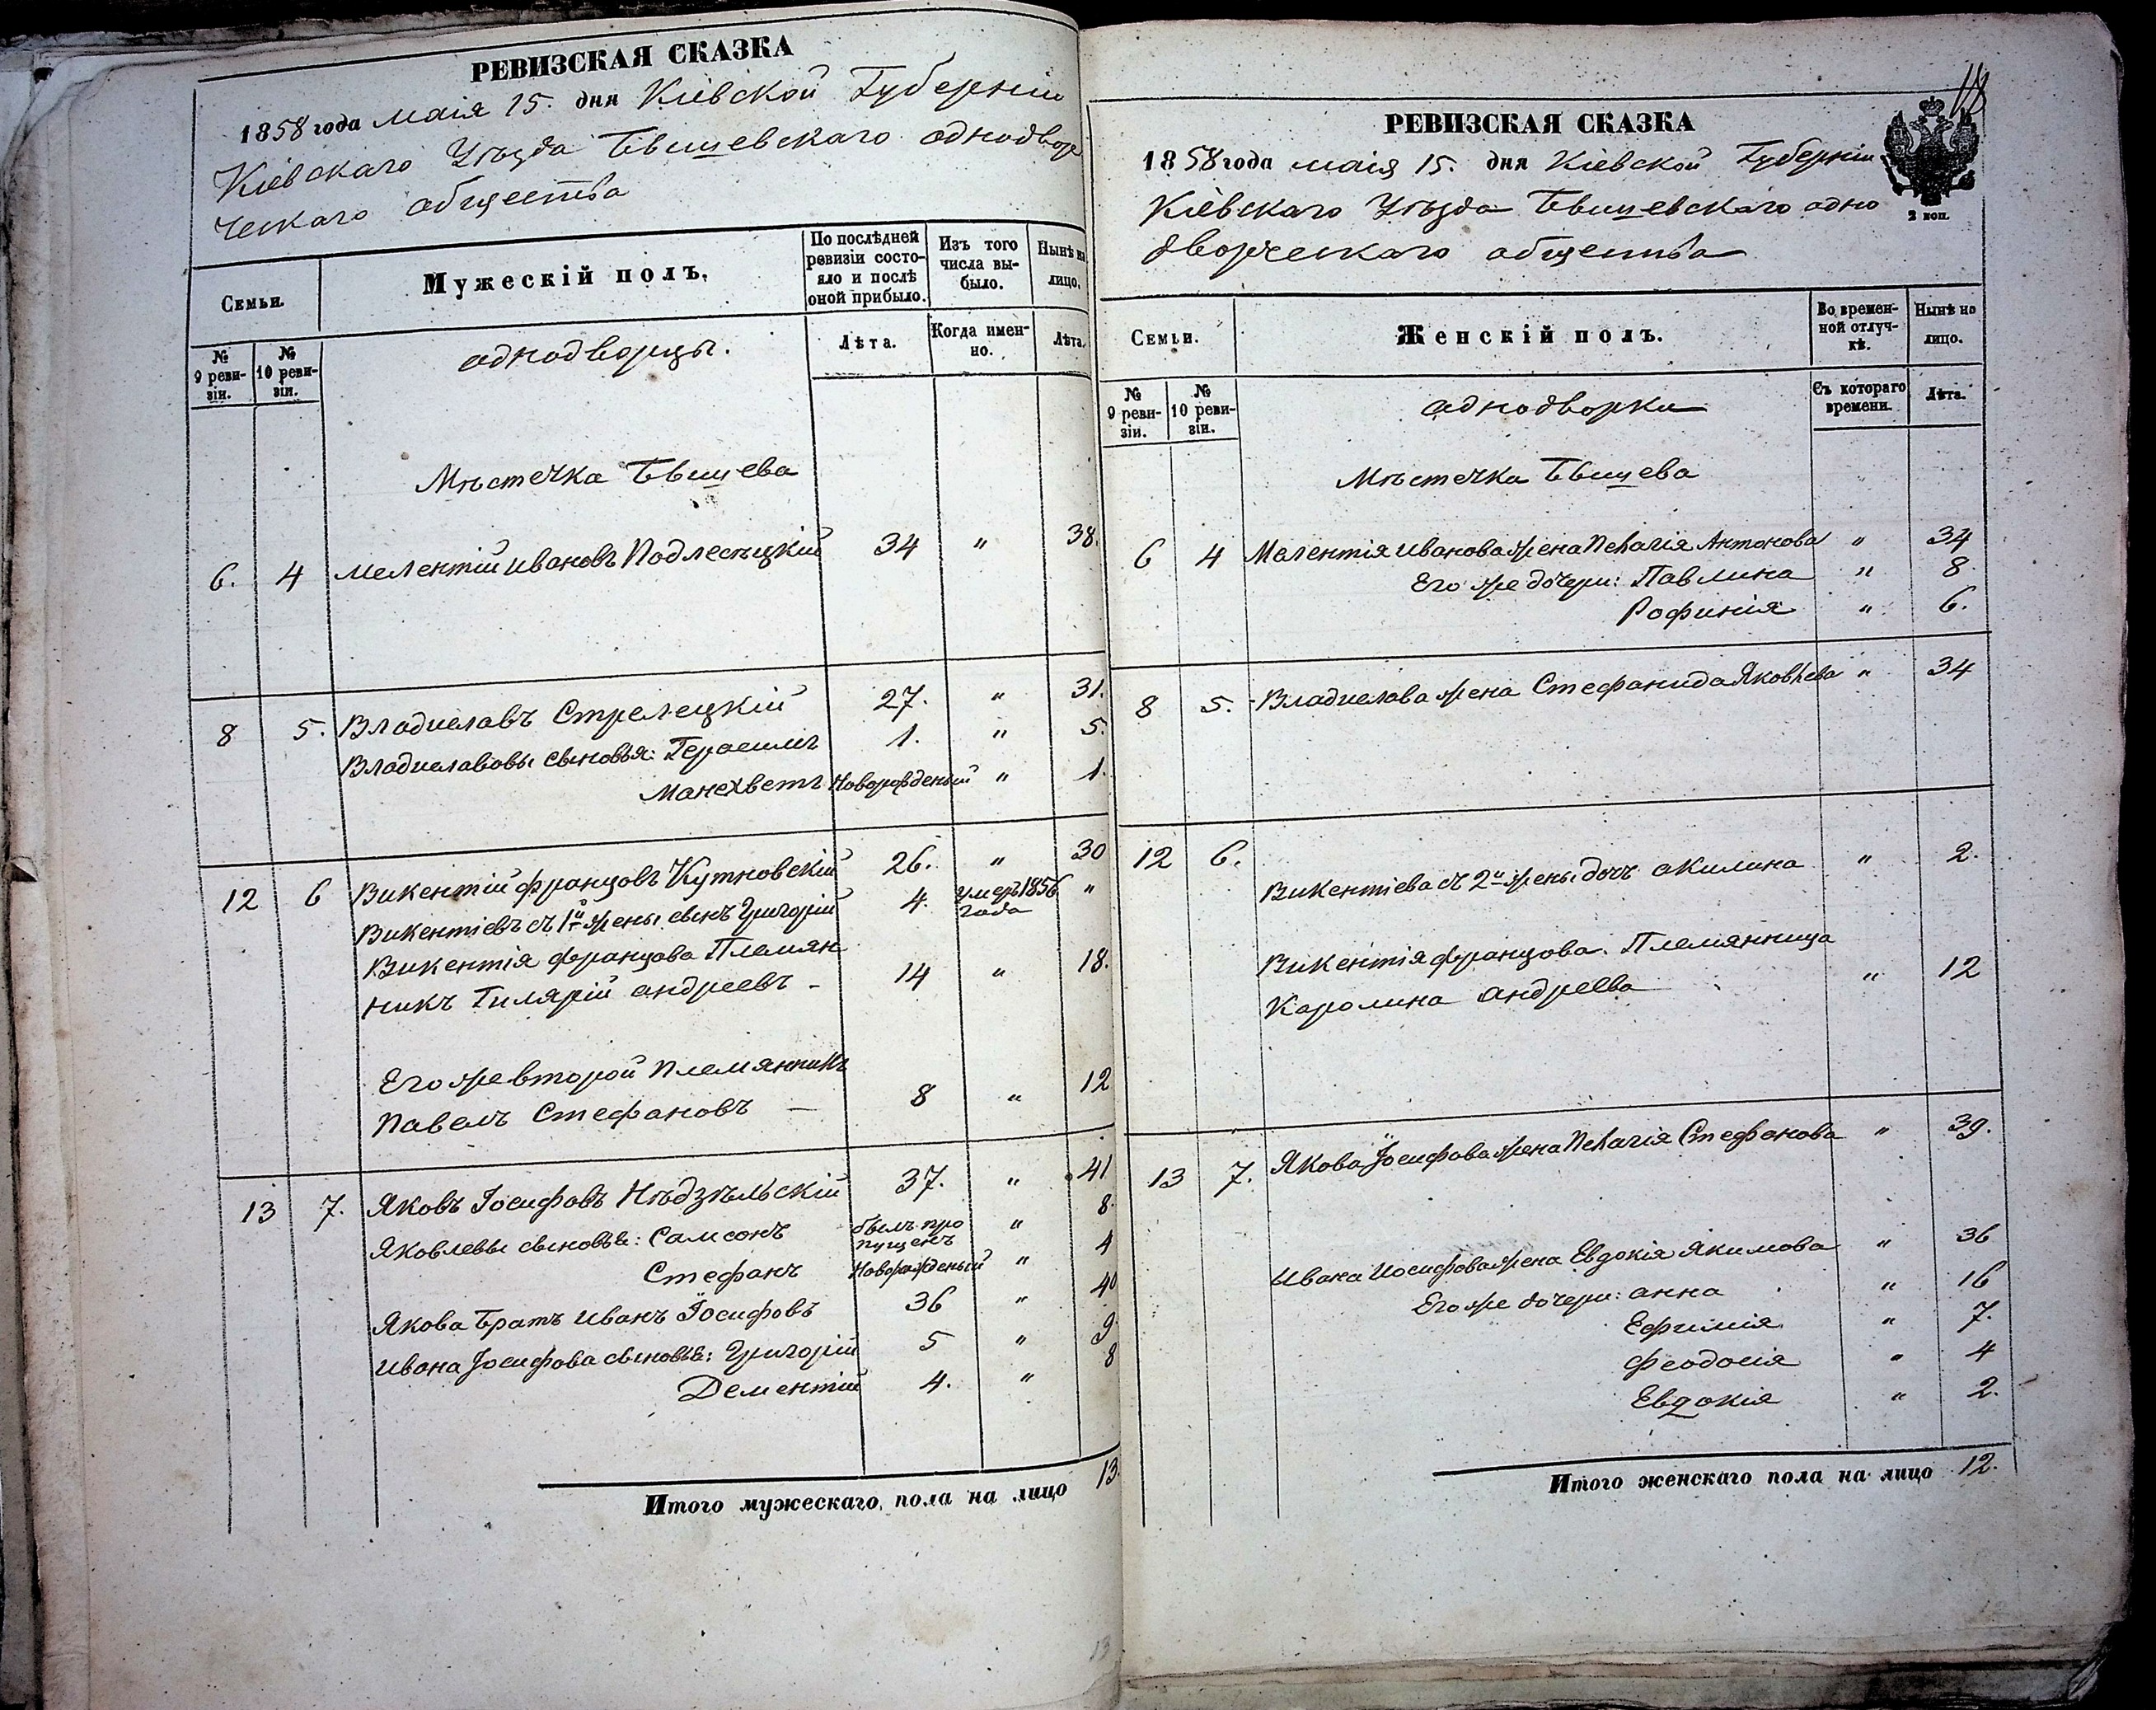 РЕВИЗСКАЯ СКАЗКА
1858 года маія 15. дня Кіевской Губерніи
Кіевскаго Уѣзда Бышевскаго однодвор
ческаго общества
Семьи.
Мужескій полъ.
По послѣдней ревизіи состояло и послѣ оной прибыло.
Изъ того числа выбыло.
Нынѣ на лицо.
№ 9 ревизіи.
№ 10 ревизіи.
однодворцы.
Лѣта.
Когда именно.
Лѣта.
Мѣстечка Бышева
6. 4 Мелентій Ивановъ Подлесѣцкій 34 " 38.
8 5. Владиславъ Стрелецкій 27. " 31.
Владиславовы сыновья: Герасимъ 1. " 5.
Манехветъ Новорожденый " 1.
12 6 Викентій Францовъ Кутновскій 26. " 30
Викентіевъ съ 1й жены сынъ Григорій 4. умеръ 1856 года "
Викентія Францова Племян
никъ Гилярій Андреевъ - 14 " 18.
Его же второй Племянникъ
Павелъ Стефановъ — 8 " 12
13 7. Яковъ Іосифовъ Нѣдзѣльскій 37. " 41
Яковлевы сыновья: Самсонъ былъ пропущенъ " 8.
Стефанъ Новорожденый " 4
Якова Братъ Иванъ Іосифовъ 36 " 40
Ивана Іосифова сыновья: Григорій 5 " 9.
Дементій 4. " 8
Итого мужескаго пола на лицо 13.
18
РЕВИЗСКАЯ СКАЗКА
1858 года маія 15. дня Кіевской Губерніи
Кіевскаго Уѣзда Бышевскаго одно
дворческаго общества
2 коп.
Семьи.
Женскій полъ.
Во временной отлучкѣ.
Нынѣ на лицо.
№ 9 ревизіи.
№ 10 ревизіи.
однодворки
Съ котораго времени.
Лѣта.
Мѣстечка Бышева
6 4 Мелентія Иванова жена Пелагія Антонова " 34
Его же дочери: Павлина " 8
Рофинія " 6.
8 5. Владислава жена Стефанида Яковлева " 34
12 6. Викентіева съ 2й жены дочь Акилина " 2.
Викентія Францова Племянница
Каролина Андреева " 12
13 7. Якова Іосифова жена Пелагія Стефанова " 39.
Ивана Иосифова жена Евдокія Якимова " 36
Его же дочери: Анна " 16
Ефимія " 7.
Феодосія " 4
Евдокія " 2.
Итого женскаго пола на лицо 12.
13